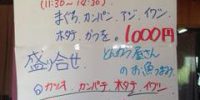 (11:30〜12:30)
まぐろ、カンパチ、アジ、イワシ
ホタテ、かつを。1000円
盛り合せ
とんぼう屋さん
のお魚つまみ
カツオ カンパチ、ホタテ イワシ